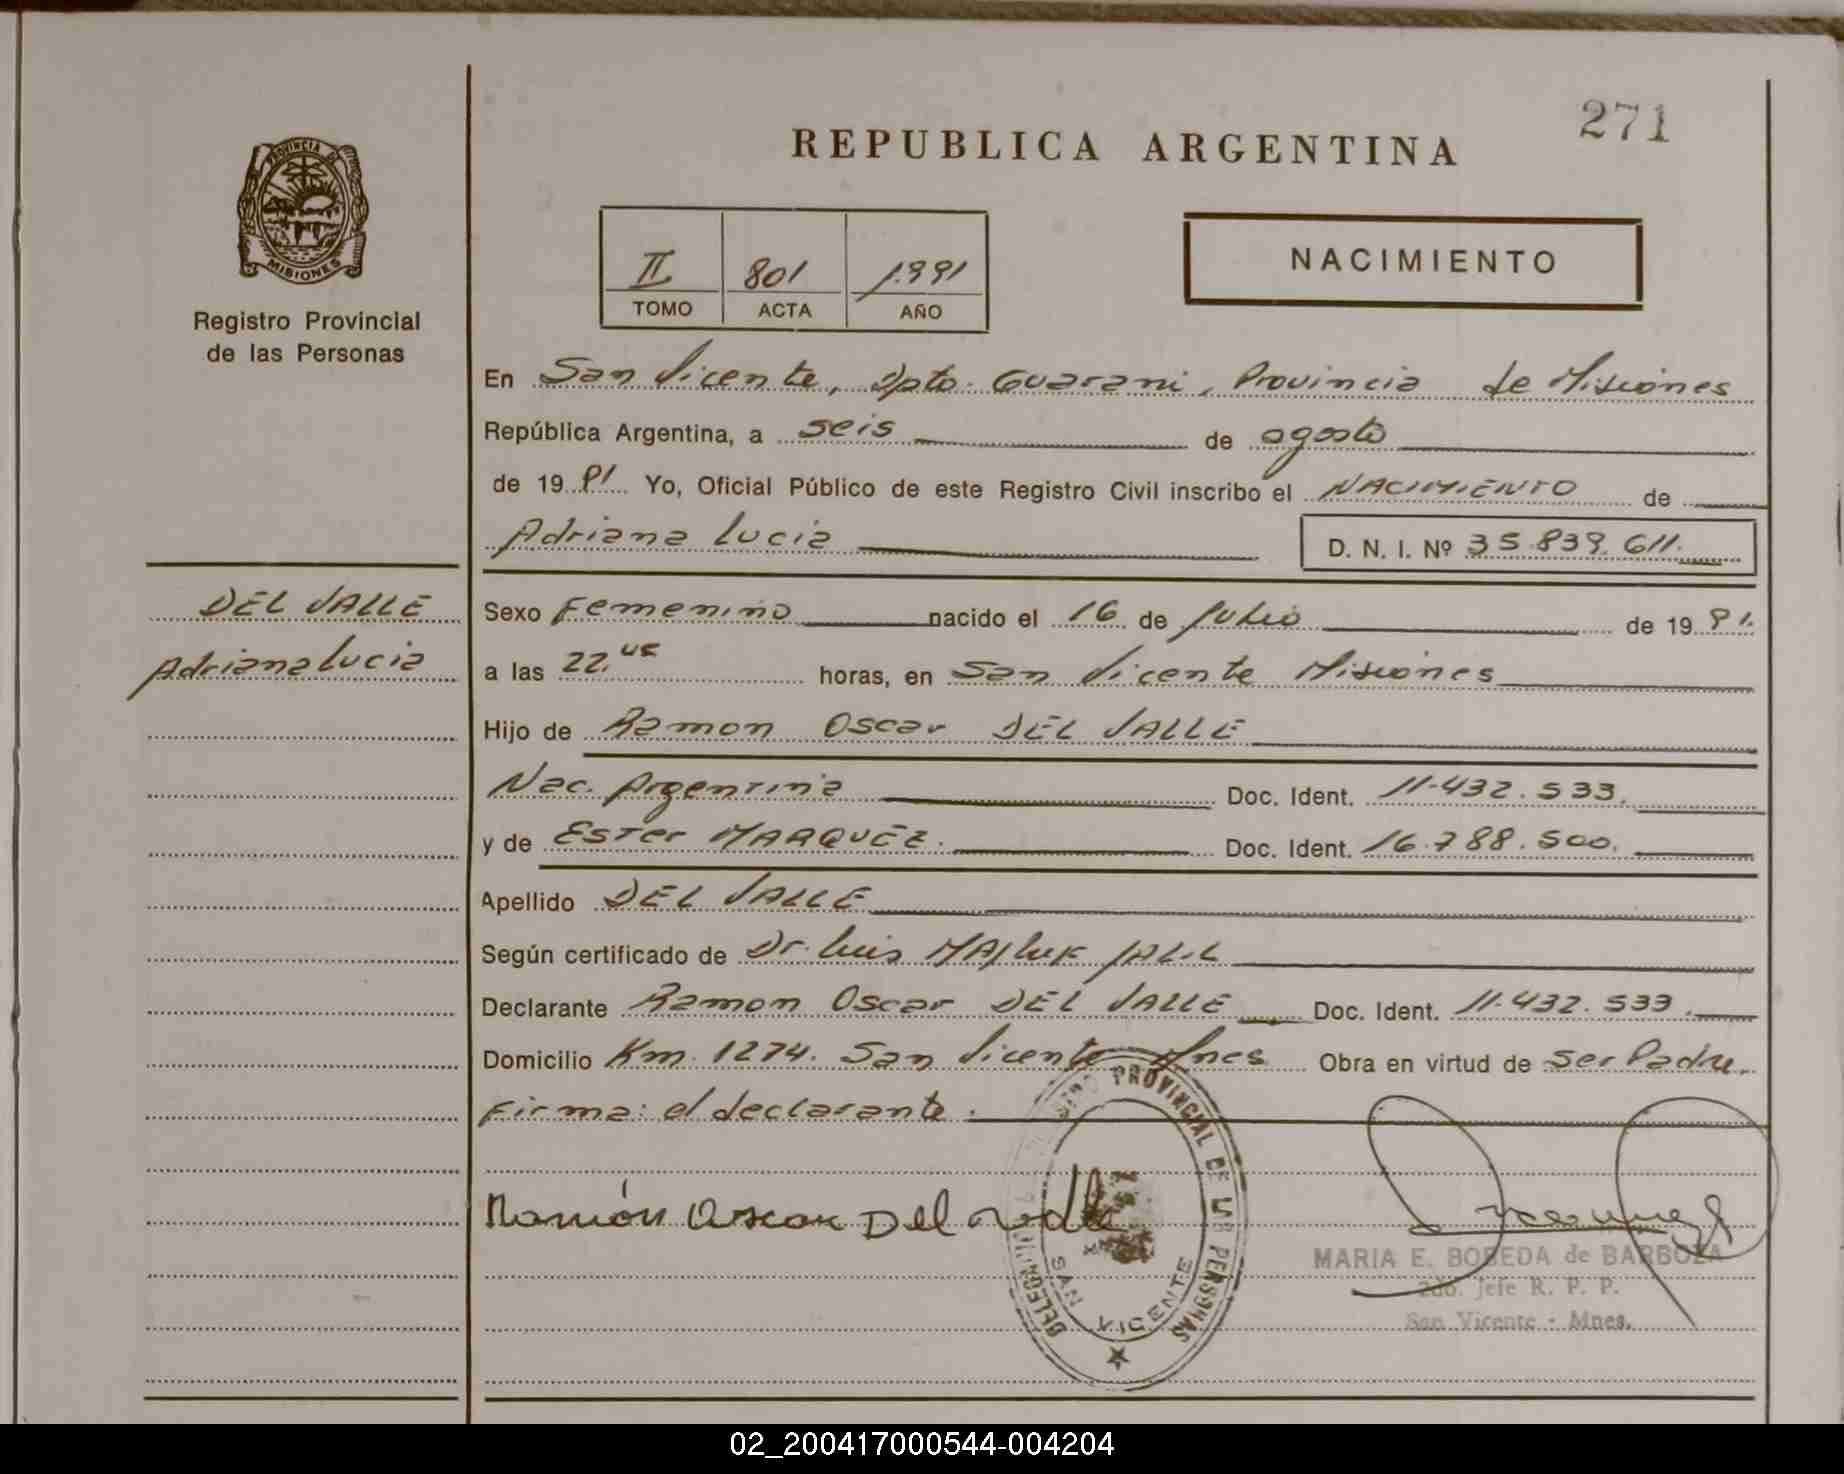 271
REPUBLICA ARGENTINA
PROVINCIA DE
MISIONES
Registro Provincial
de las Personas
II 801 1.991
TOMO ACTA AÑO
NACIMIENTO
En San Vicente, Dpto. Guarani, Provincia de Misiones
República Argentina, a seis de agosto
de 1991. Yo, Oficial Público de este Registro Civil inscribo el NACIMIENTO de
Adriana Lucia D. N. I. Nº 35.839.611.
DEL VALLE
Adriana Lucia
Sexo Femenino nacido el 16 de Julio de 1991.
a las 22.45 horas, en San Vicente Misiones
Hijo de Ramon Oscar DEL VALLE
Nac. Argentina Doc. Ident. 11.432.533.
y de Ester MARQUEZ. Doc. Ident. 16.788.500.
Apellido DEL VALLE
Según certificado de Dr. Luis MAJLUK JALIL
Declarante Ramon Oscar DEL VALLE Doc. Ident. 11.432.533.
Domicilio Km. 1274. San Vicente Mnes Obra en virtud de ser Padre.
Firma: el declarante.
Ramón Oscar Del Valle
PROVINCIAL DE LAS PERSONAS
DELEGACION
SAN VICENTE
MARIA E. BOBEDA de BARBOZA
2do. Jefe R. P. P.
San Vicente - Mnes.
02_200417000544-004204